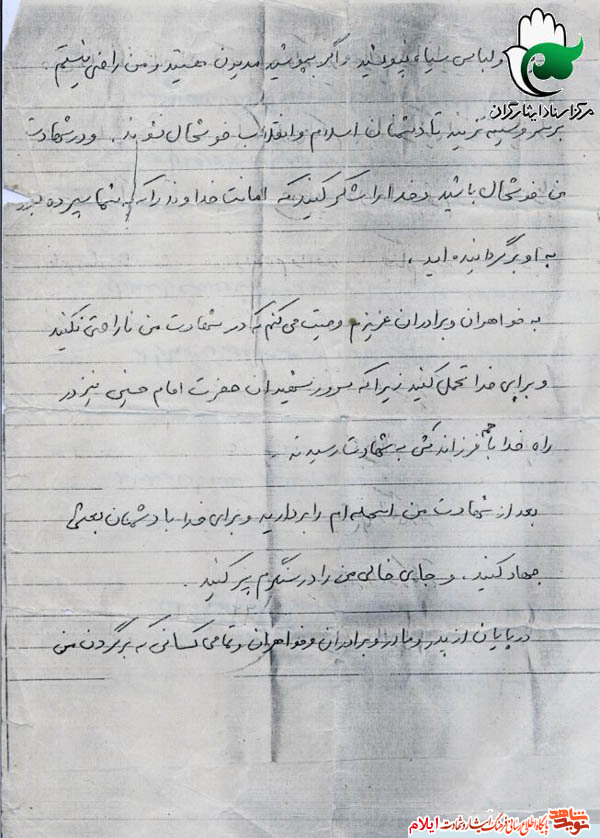 مرکز اسناد ایثارگران
و لباس سیاه نپوشید و اگر بپوشید مدیون هستید و من راضی نیستم.
بر سر و سینه نزنید تا دشمنان اسلام و انقلاب خوشحال نشوند. و در شهادت
من خوشحال باشید و خدا را شکر کنید که امانت خداوند را که به شما سپرده بود
به او برگردانیده اید.
به خواهران و برادران عزیزم وصیت می کنم که در شهادت من ناراحتی نکنید
و برای خدا تحمل کنید زیرا که سرور شهیدان حضرت امام حسین نیز در
راه خدا با همه فرزاندنش به شهادت رسیدند.
بعد از شهادت من اسلحه ام را بردارید و برای خدا با دشمنان بعثی
جهاد کنید. و جای خالی من را در سنگرم پر کنید.
در پایان از پدر و مادر و برادران و خواهران و تمامی کسانی که بر گردن من
نوید شاهد
پایگاه اطلاع رسانی فرهنگ ایثار و شهادت ایلام